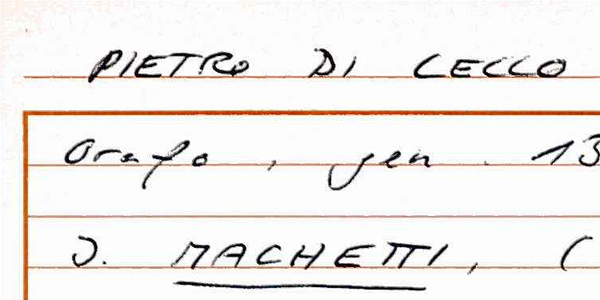 PIETRO DI CECCO
Orafo, gen. 13
I. MACHETTI, (